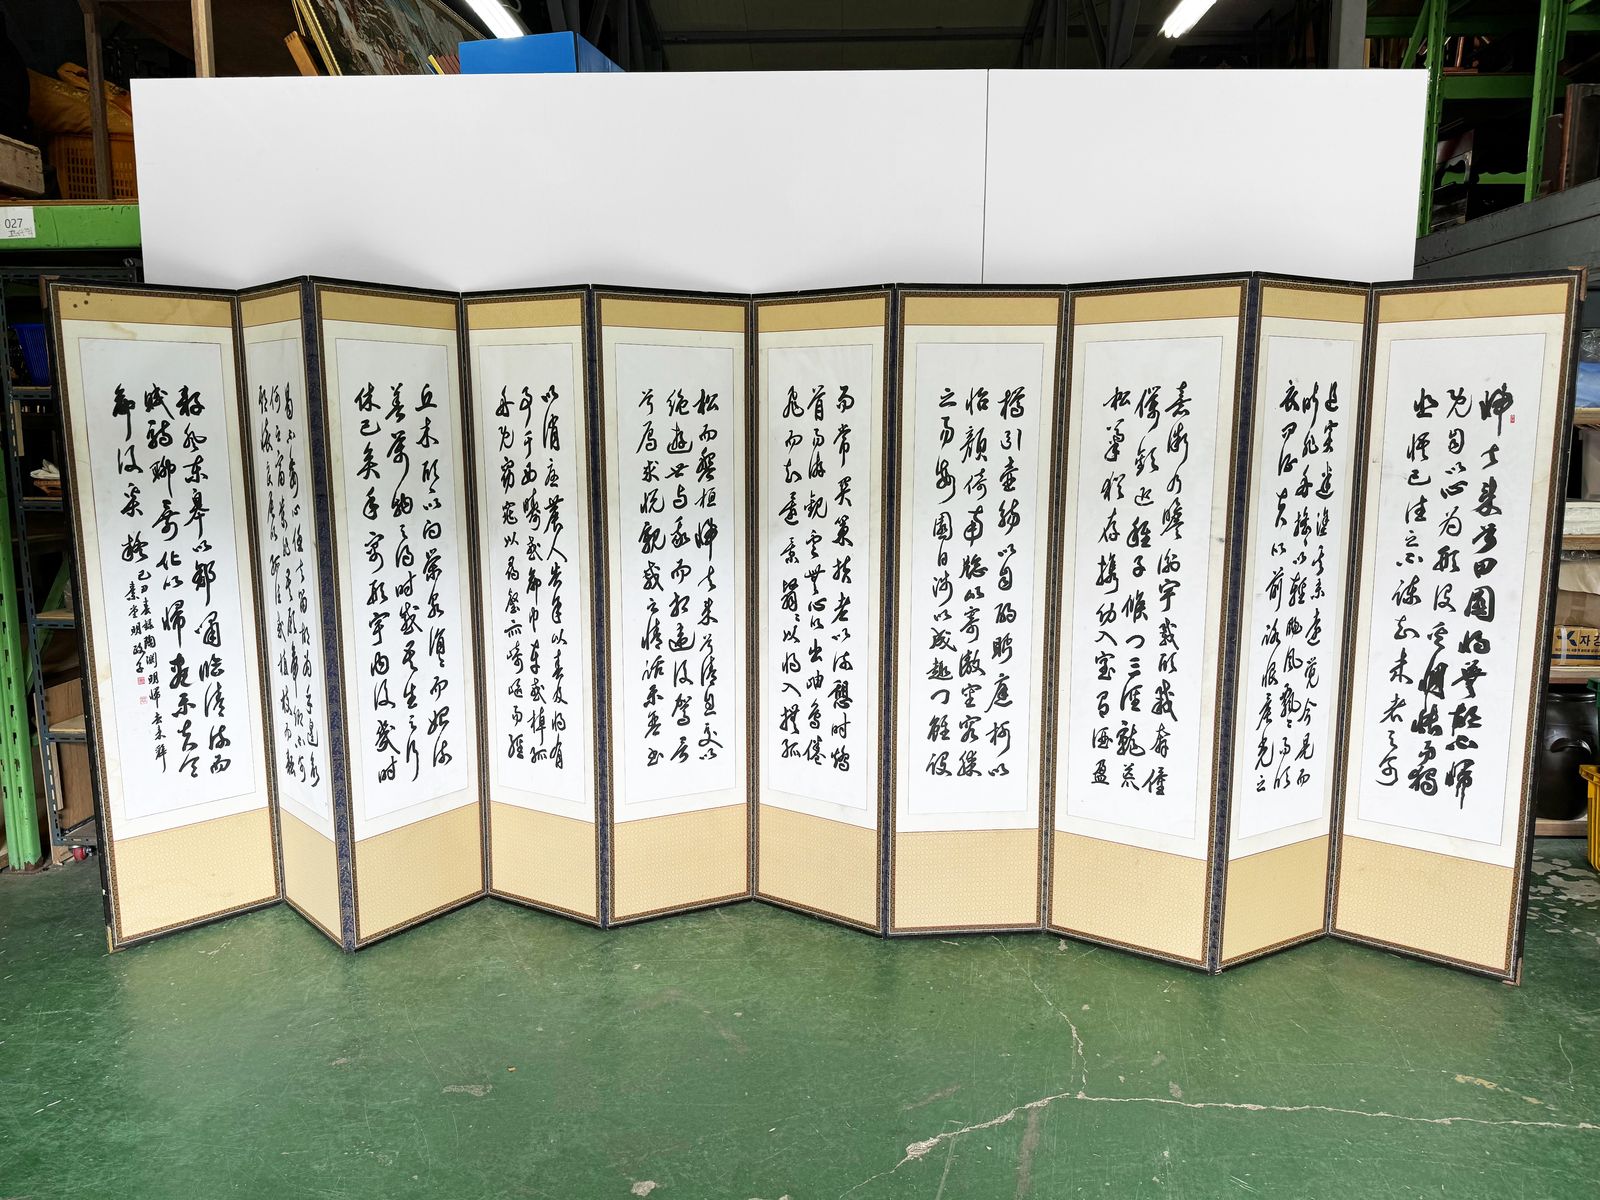 歸去來兮田園將蕪胡不歸
既自以心爲形役奚惆悵而獨
悲悟已往之不諫知來者之可
追實迷途其未遠覺今是而
昨非舟搖以輕颺風飄飄而吹
衣問征夫以前路恨晨光之
熹微乃瞻衡宇載欣載奔僮
僕歡迎稚子候門三徑就荒
松菊猶存携幼入室有酒盈
樽引壺觴以自酌眄庭柯以
怡顔倚南牕以寄傲審容膝
之易安園日涉以成趣門雖設
而常關策扶老以流憩時矯
首而游觀雲無心以出岫鳥倦
飛而知還景翳翳以將入撫孤
松而盤桓歸去來兮請息交以
絶遊世與我而相遺復駕言
兮焉求悦親戚之情話樂琴書
以消憂農人告余以春及將有
事于西疇或命巾車或棹孤
舟既窈窕以尋壑亦崎嶇而經
丘木欣欣以向榮泉涓涓而始流
善萬物之得時感吾生之行
休已矣乎寓形宇内復幾時
曷不委心任去留胡爲乎遑遑欲
何之富貴非吾願帝鄕不可
期懷良辰以孤往或植杖而耘
耔登東皐以舒嘯臨清流而
賦詩聊乘化以歸盡樂夫天
命復奚疑
己丑春錄陶淵明歸去來辭
素堂明
027
자강